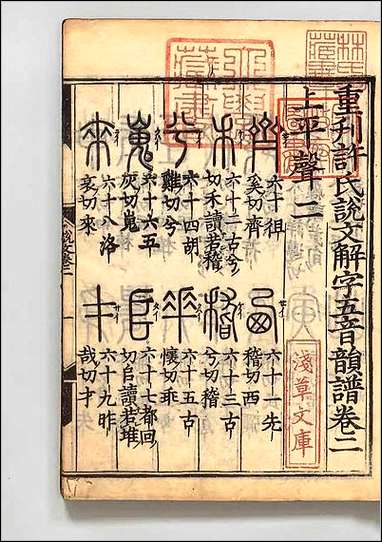 重刊許氏說文解字五音韻譜卷二
上平聲二
齊
六十徂
奚切齊
西
六十一先
稽切西
禾
六十二古兮
切禾讀若稽
稽
六十三古
兮切稽
兮
六十四胡
雞切兮
乖
六十五古
懷切乖
嵬
六十六五
灰切嵬
𠂤
六十七都回
切𠂤讀若堆
來
六十八洛
哀切來
才
六十九昨
哉切才
淺草文庫
林氏藏書